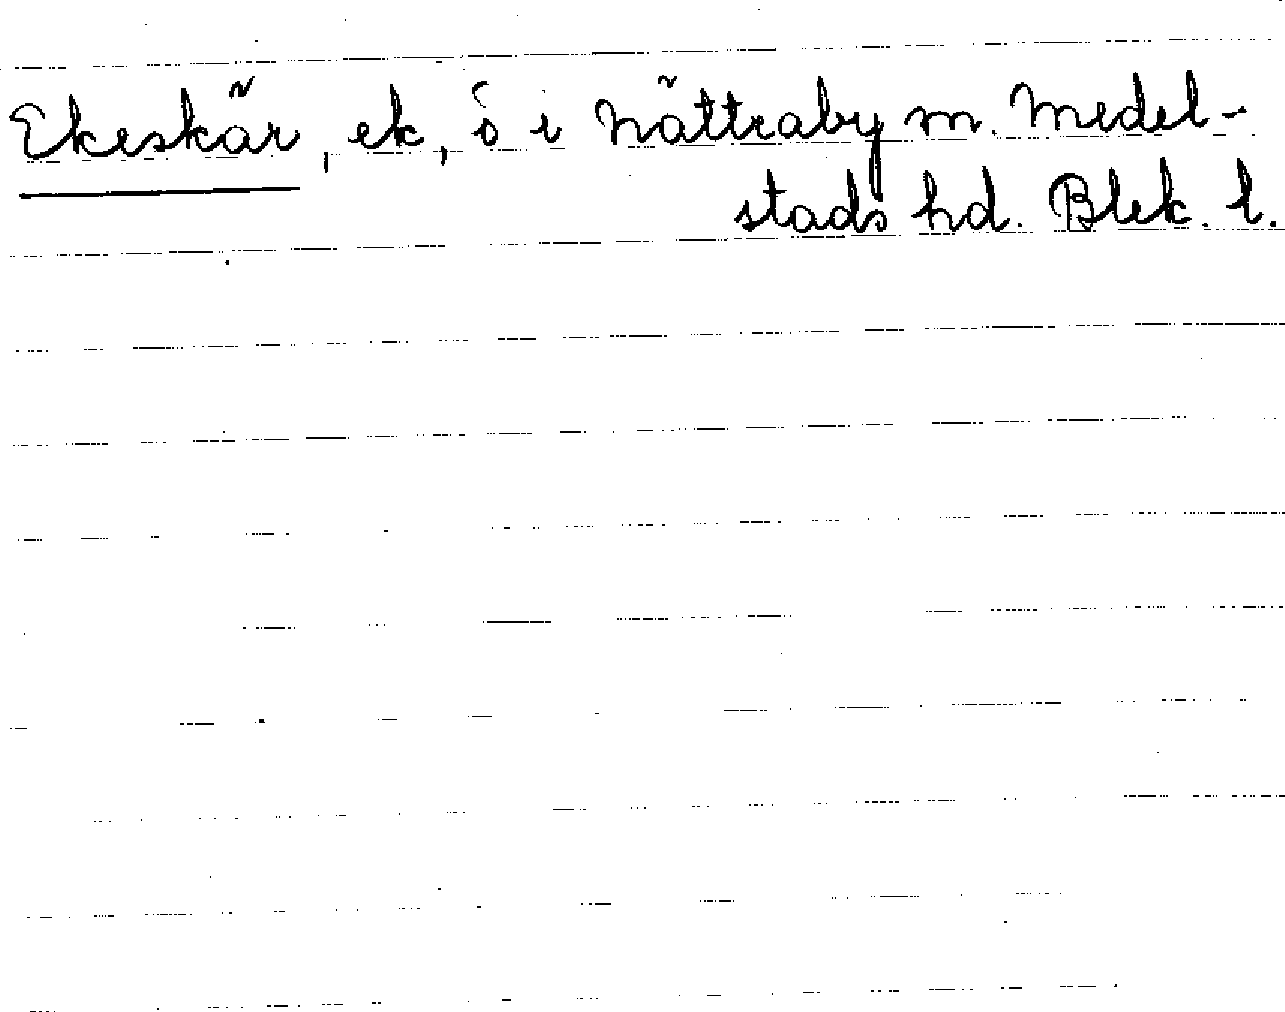 Ekeskär, ek, ö i Nättraby sn. Medel-
stads hd. Blek. l.